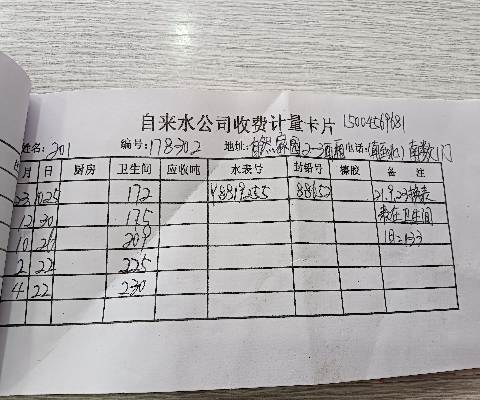 自来水公司收费计量卡片 15004569681
姓名: 201 编号: 178-30.2 地址: 自然家园2-3西厢 电话: 南数1门
月 日 厨房 卫生间 应收吨 水表号 封铅号 橡胶 备 注
23 10 25 172 Y8819255 88652 21.9.23换表
12 30 175 表在卫生间
10 26 209 旧=153
2 22 225
4 22 230